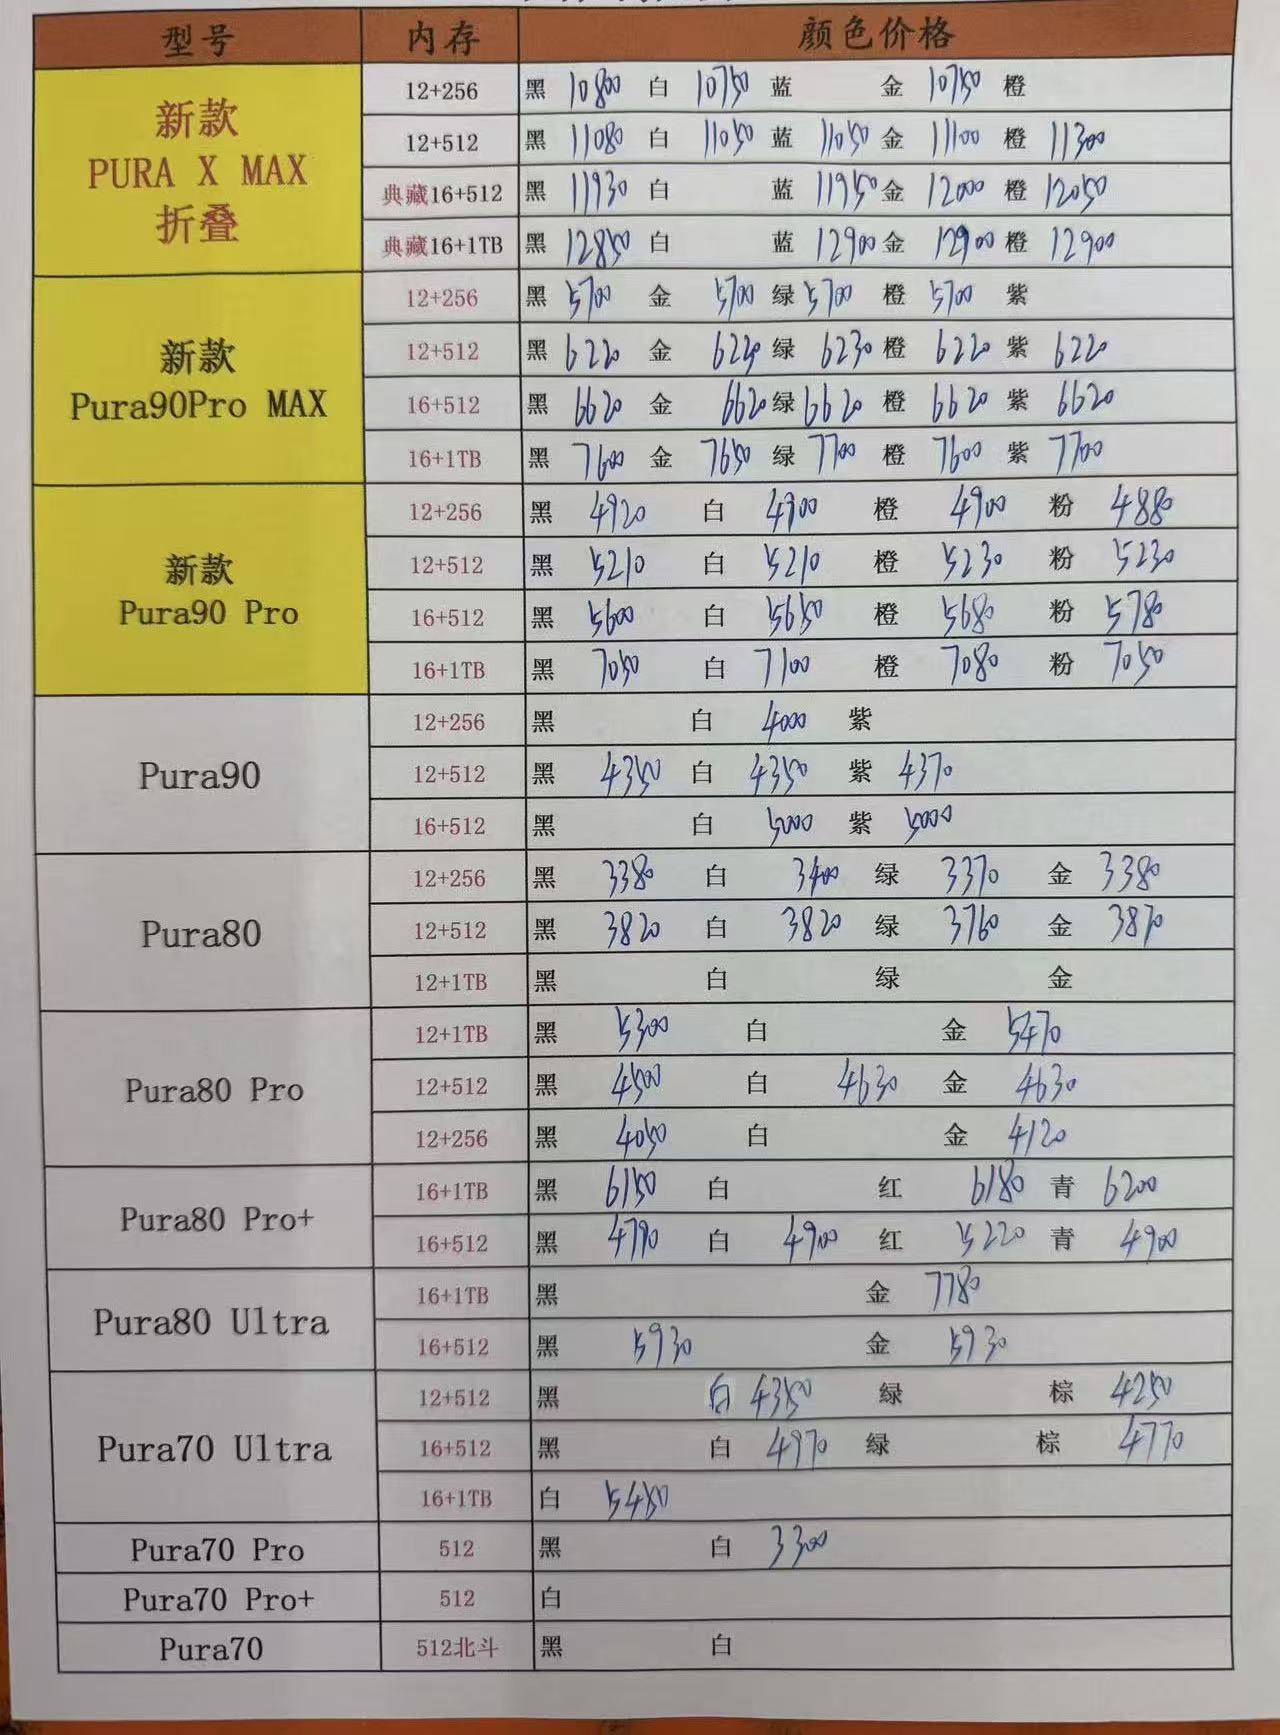 型号 内存 颜色价格
新款 PURA X MAX 折叠
12+256 黑 10800 白 10750 蓝 金 10750 橙
12+512 黑 11080 白 11050 蓝 11050 金 11100 橙 11300
典藏16+512 黑 11930 白 蓝 11950 金 12000 橙 12050
典藏16+1TB 黑 12850 白 蓝 12900 金 12900 橙 12900
新款 Pura90Pro MAX
12+256 黑 5700 金 5700 绿 5700 橙 5700 紫
12+512 黑 6220 金 6220 绿 6230 橙 6220 紫 6220
16+512 黑 6620 金 6620 绿 6620 橙 6620 紫 6620
16+1TB 黑 7600 金 7650 绿 7700 橙 7600 紫 7700
新款 Pura90 Pro
12+256 黑 4920 白 4900 橙 4900 粉 4880
12+512 黑 5210 白 5210 橙 5230 粉 5230
16+512 黑 5600 白 5650 橙 5680 粉 5780
16+1TB 黑 7050 白 7100 橙 7080 粉 7050
Pura90
12+256 黑 白 4000 紫
12+512 黑 4350 白 4350 紫 4370
16+512 黑 白 5000 紫 5000
Pura80
12+256 黑 3380 白 3400 绿 3370 金 3380
12+512 黑 3820 白 3820 绿 3760 金 3870
12+1TB 黑 白 绿 金
Pura80 Pro
12+1TB 黑 5300 白 金 5470
12+512 黑 4500 白 4630 金 4630
12+256 黑 4050 白 金 4120
Pura80 Pro+
16+1TB 黑 6150 白 红 6180 青 6200
16+512 黑 4790 白 4900 红 5220 青 4900
Pura80 Ultra
16+1TB 黑 金 7780
16+512 黑 5930 金 5930
Pura70 Ultra
12+512 黑 白 4350 绿 棕 4250
16+512 黑 白 4970 绿 棕 4770
16+1TB 白 5450
Pura70 Pro 512 黑 白 3300
Pura70 Pro+ 512 白
Pura70 512北斗 黑 白